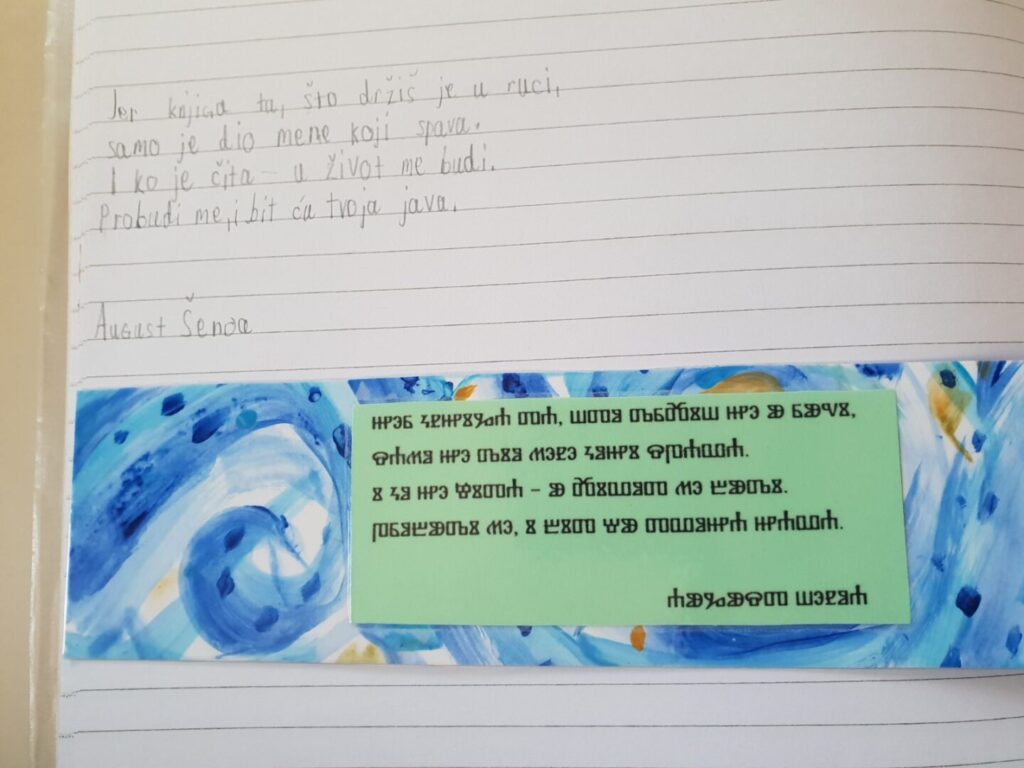 Jer knjiga ta, što držiš je u ruci,
samo je dio mene koji spava.
I ko je čita – u život me budi.
Probudi me, i bit ću tvoja java.
August Šenoa
ⰼⰵⱃ ⰽⱀⰼⰻⰳⰰ ⱅⰰ, ⱎⱅⱁ ⰴⱃⰶⰻⱎ ⰼⰵ ⱆ ⱃⱆⱌⰻ,
ⱄⰰⰿⱁ ⰼⰵ ⰴⰻⱁ ⰿⰵⱀⰵ ⰽⱁⰼⰻ ⱄⱂⰰⰲⰰ.
ⰻ ⰽⱁ ⰼⰵ ⱍⰻⱅⰰ – ⱆ ⰶⰻⰲⱁⱅ ⰿⰵ ⰱⱆⰴⰻ.
ⱂⱃⱁⰱⱆⰴⰻ ⰿⰵ, ⰻ ⰱⰻⱅ ⱋⱆ ⱅⰲⱁⰼⰰ ⰼⰰⰲⰰ.
ⰰⱆⰳⱆⱄⱅ ⱎⰵⱀⱁⰰ